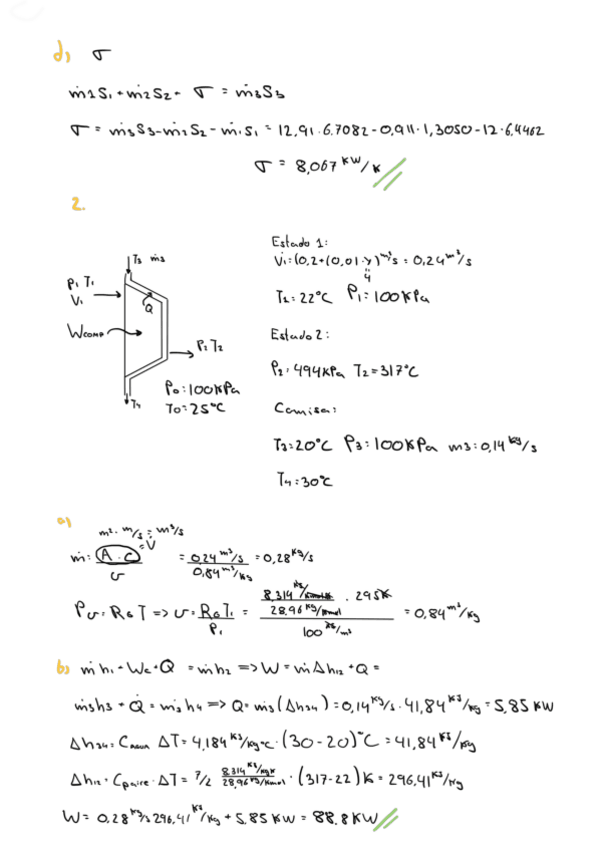 d) σ
ṁ1S1 + ṁ2S2 + σ = ṁ3S3
σ = ṁ3S3-ṁ2S2-ṁ1S1 = 12,91·6.7082-0,911·1,3050-12·6,4462
σ = 8,067 kW/K
2.
T3 ṁ3
P1 T1
V1
Q
WCOMP
P2 T2
T4
P0=100KPa
T0=25°C
Estado 1:
V1=(0,2+(0,01·y)m³/s = 0,24 m³/s
4
T1=22°C P1=100KPa
Estado 2:
P2=494KPa T2=317°C
Camisa:
T3=20°C P3=100KPa m3=0,14 kg/s
T4=30°C
a)
m²·m/s = m³/s
ṁ = A·C / v = 0,24 m³/s / 0,84 m³/kg = 0,28 kg/s
=V
Pv=RGT => v = RGT1 / P1 = 8,314 / 28,96 kg/kmol · 295K / 100 = 0,84 m³/kg
b) ṁh1+Wc+Q = ṁh2 => W = ṁΔh12+Q =
ṁ3h3 + Q̇ = ṁ3h4 => Q = ṁ3(Δh34) = 0,14 kg/s · 41,84 KJ/kg = 5,85 KW
Δh34 = Cagua ΔT = 4,184 KJ/kg°C · (30-20)°C = 41,84 KJ/kg
Δh12 = Cpaire·ΔT = 7/2 8,314 KJ/kgK / 28,96 kg/kmol · (317-22)K = 296,41 KJ/kg
W = 0,28 kg/s 296,41 KJ/kg + 5.85 KW = 88,8 KW